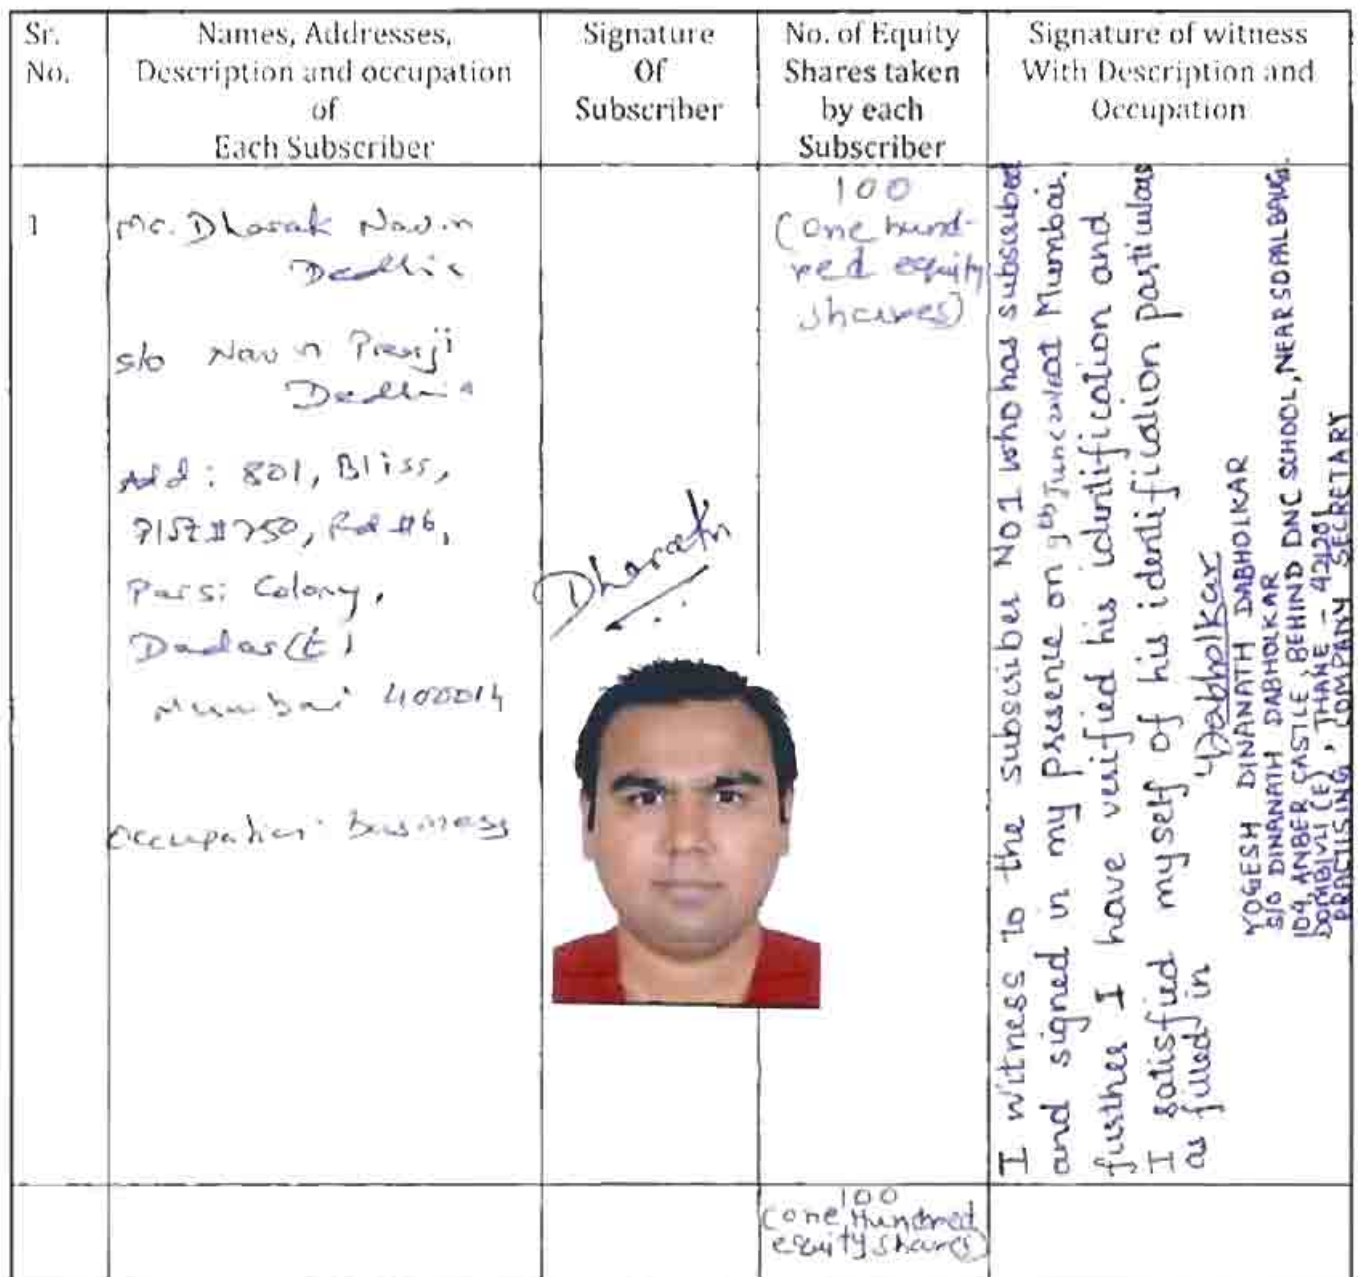 Sr.
No.
Names, Addresses,
Description and occupation
of
Each Subscriber
Signature
Of
Subscriber
No. of Equity
Shares taken
by each
Subscriber
Signature of witness
With Description and
Occupation
1
Mr. Dharak Navin
Dedhia
s/o Navin Premji
Dedhia
Add: 801, Bliss,
Plot #750, Rd #6,
Parsi Colony,
Dadar(E)
Mumbai 400014
Occupation: Business
100
(One hund-
red equity
shares)
I witness to the subscriber NO1 who has subscribed
and signed in my presence on 9th June at Mumbai.
further I have verified his identification and
I satisfied myself of his identification particulars
as filled in
YDabholkar
YOGESH DINANATH DABHOLKAR
S/O DINANATH DABHOLKAR
104, AMBER CASTLE, BEHIND DNC SCHOOL, NEAR GOPALBAUG.
DOMBIVLI (E), THANE - 421201
PRACTISING COMPANY SECRETARY
100
(One Hundred
equity shares)